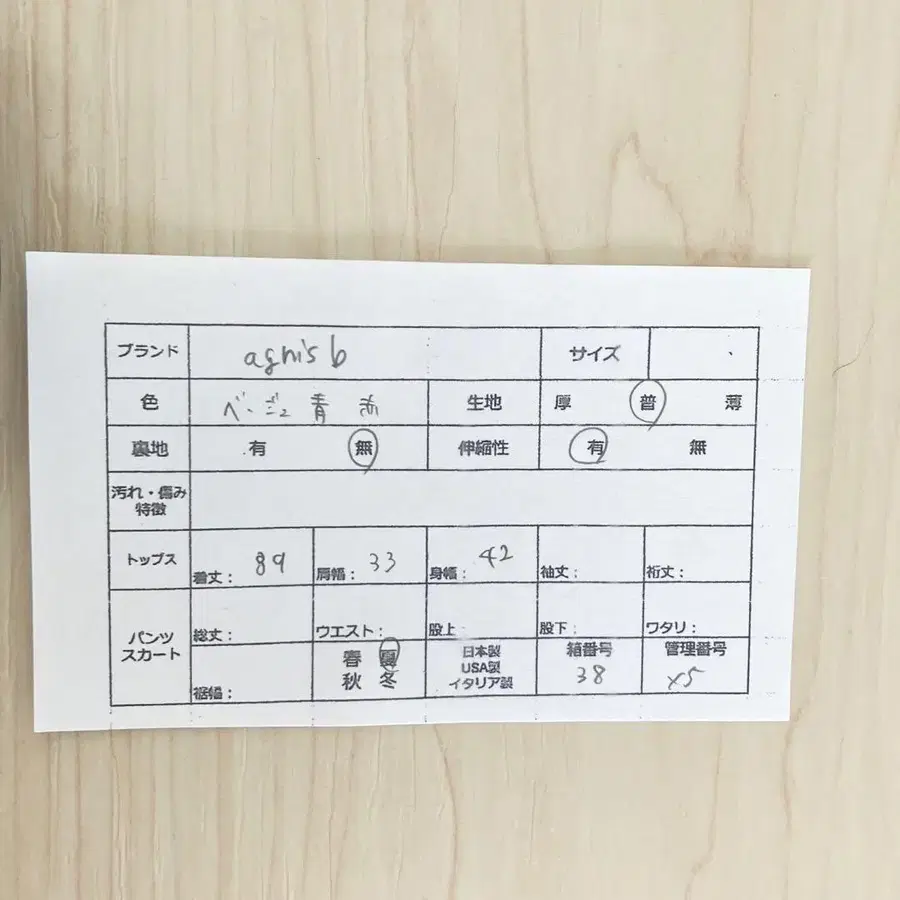 ブランド agnis b サイズ
色 ベージュ 青 赤 生地 厚 普 薄
裏地 有 無 伸縮性 有 無
汚れ・傷み
特徴
トップス 着丈: 89 肩幅: 33 身幅: 42 袖丈: 裄丈:
パンツ
スカート
総丈: ウエスト: 股上: 股下: ワタリ:
裾幅:
春 夏
秋 冬
日本製
USA製
イタリア製
箱番号
38
管理番号
x5